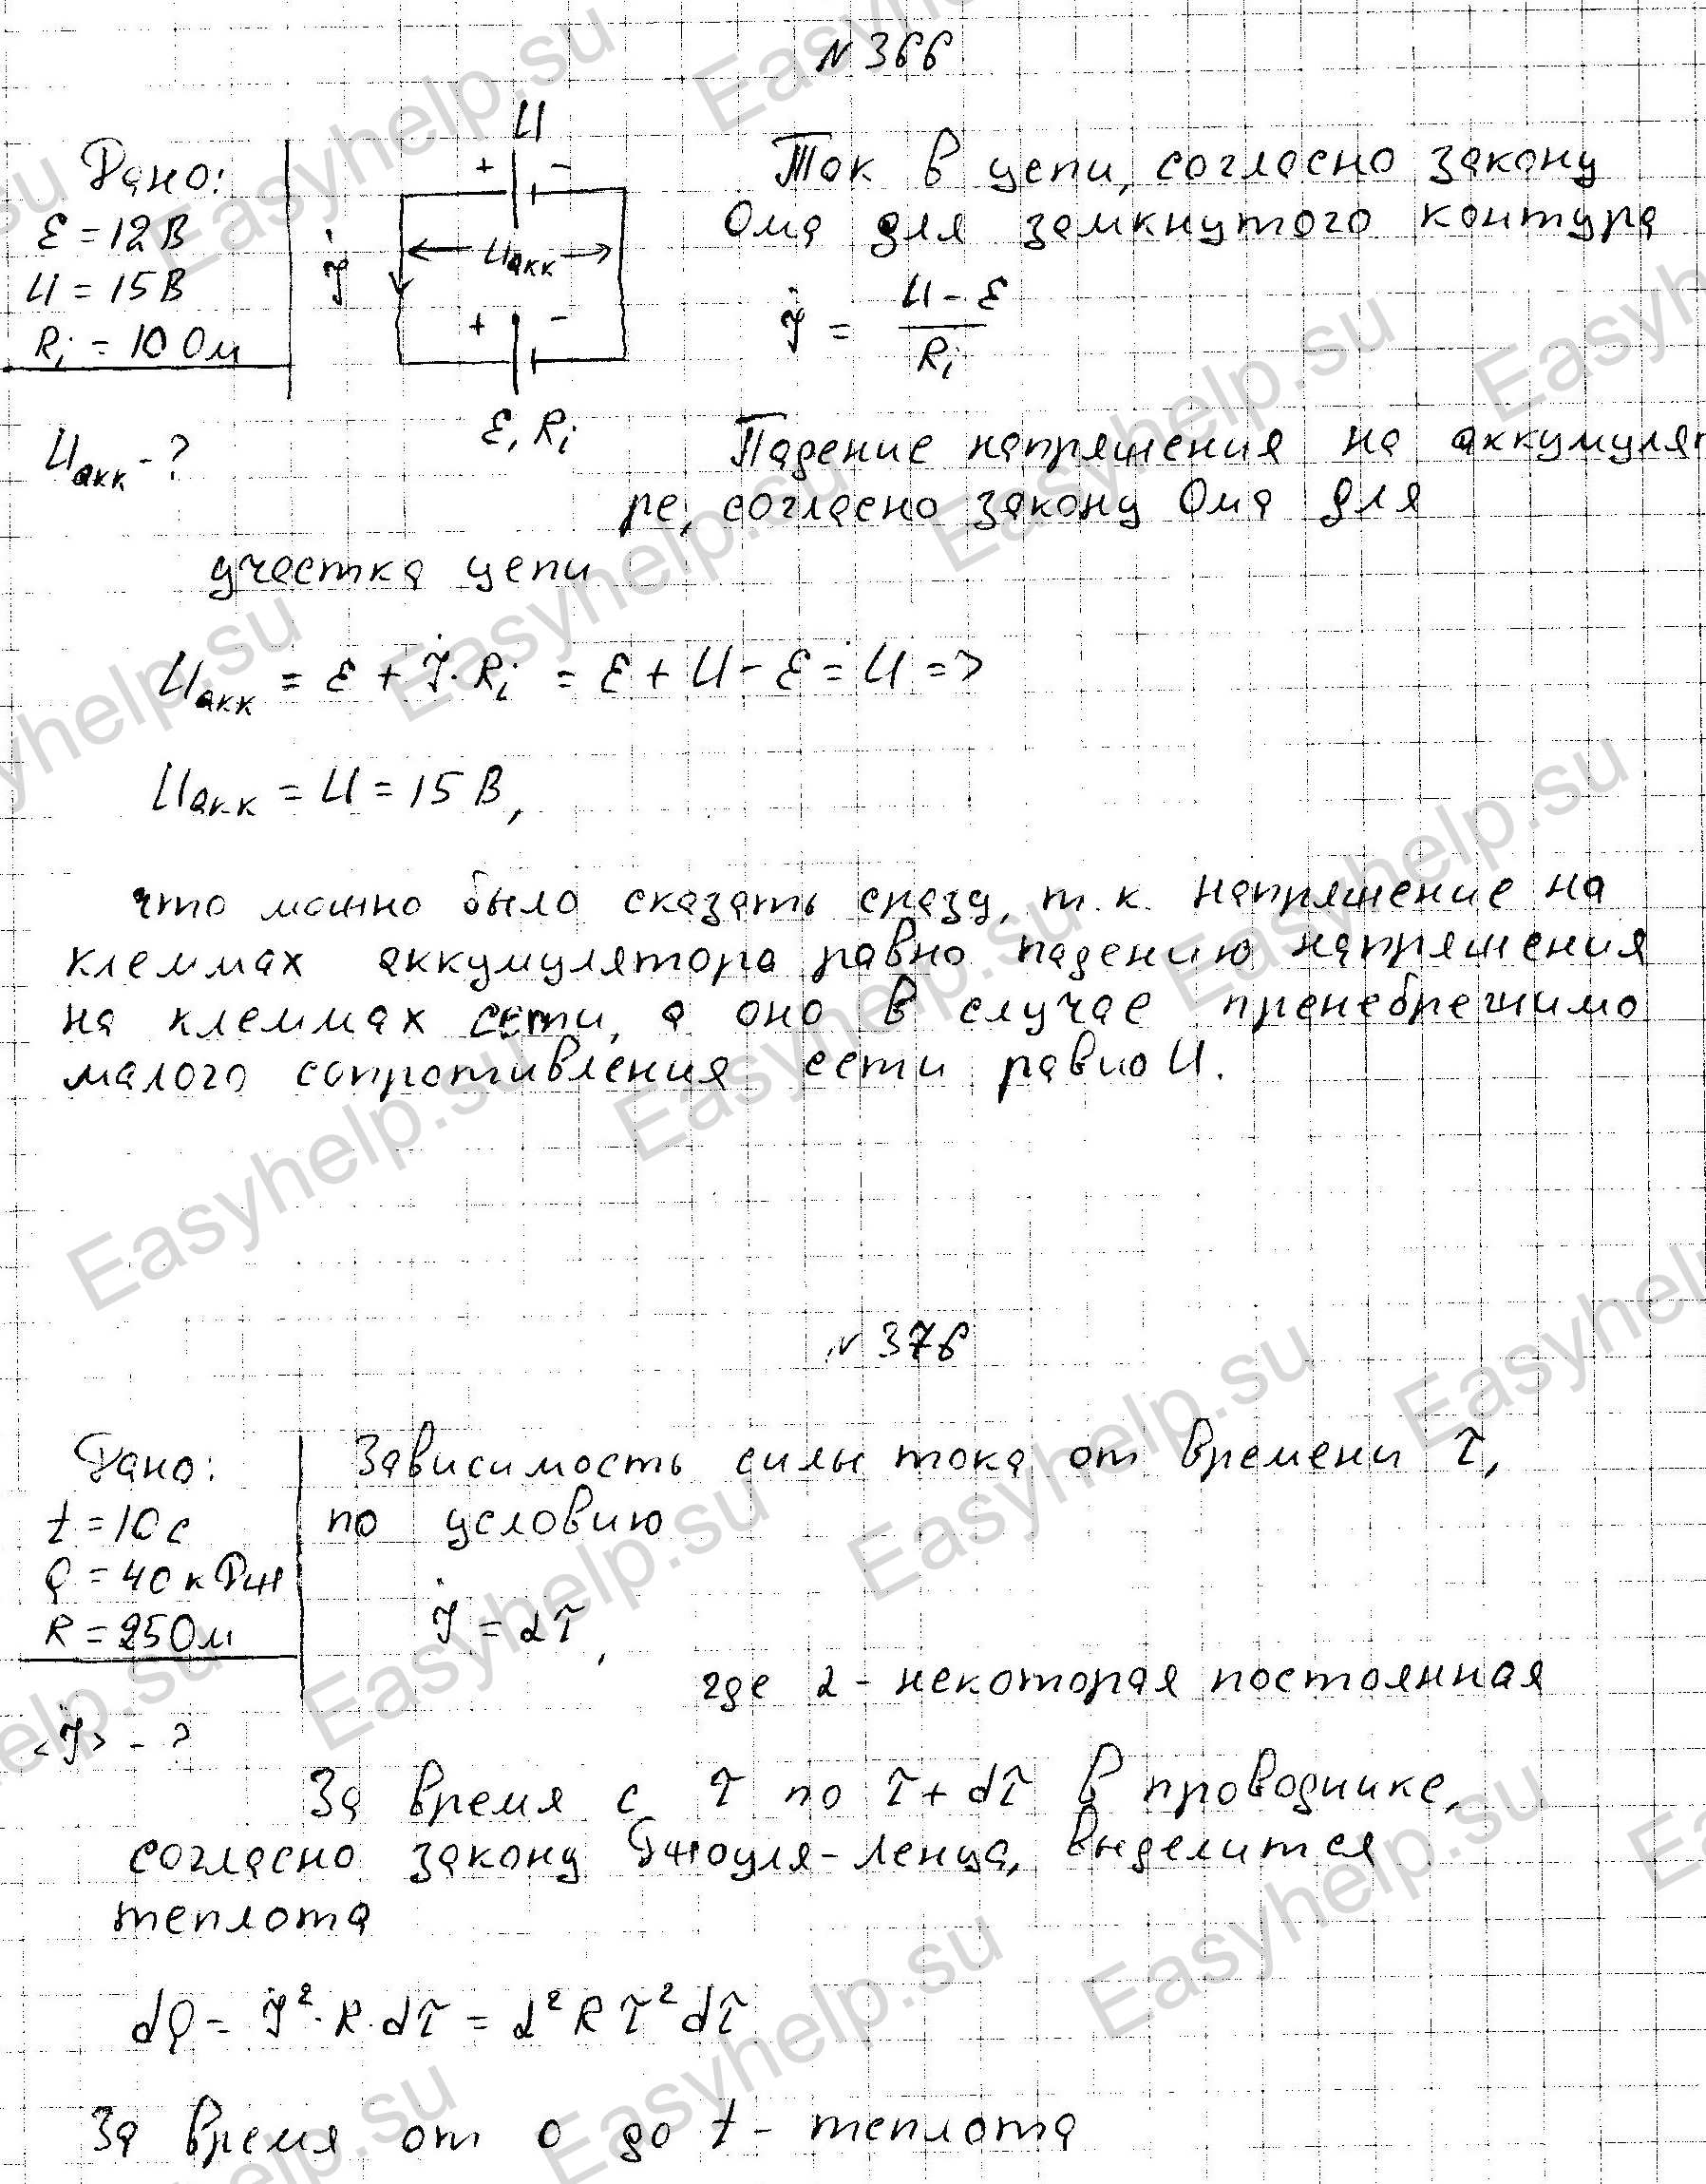 № 366
Дано:
ℰ = 12 В
U = 15 В
Ri = 10 Ом
Uакк - ?
U
+ -
J
Uакк
+ -
ℰ, Ri
Ток в цепи, согласно закону
Ома для замкнутого контура
J = (U - ℰ) / Ri
Падение напряжения на аккумулят
ре, согласно закону Ома для
участка цепи
Uакк = ℰ + J · Ri = ℰ + U - ℰ = U =>
Uакк = U = 15 В,
что можно было сказать сразу, т. к. напряжение на
клеммах аккумулятора равно падению напряжения
на клеммах сети, а оно в случае пренебрежимо
малого сопротивления сети равно U.
№ 376
Дано:
t = 10 с
Q = 40 кДж
R = 25 Ом
<J> - ?
Зависимость силы тока от времени τ,
по условию
J = ατ,
где α - некоторая постоянная
За время с τ по τ + dτ в проводнике,
согласно закону Джоуля-Ленца, выделится
теплота
dQ = J² · R · dτ = α² R τ² dτ
За время от 0 до t - теплота
Easyhelp.su